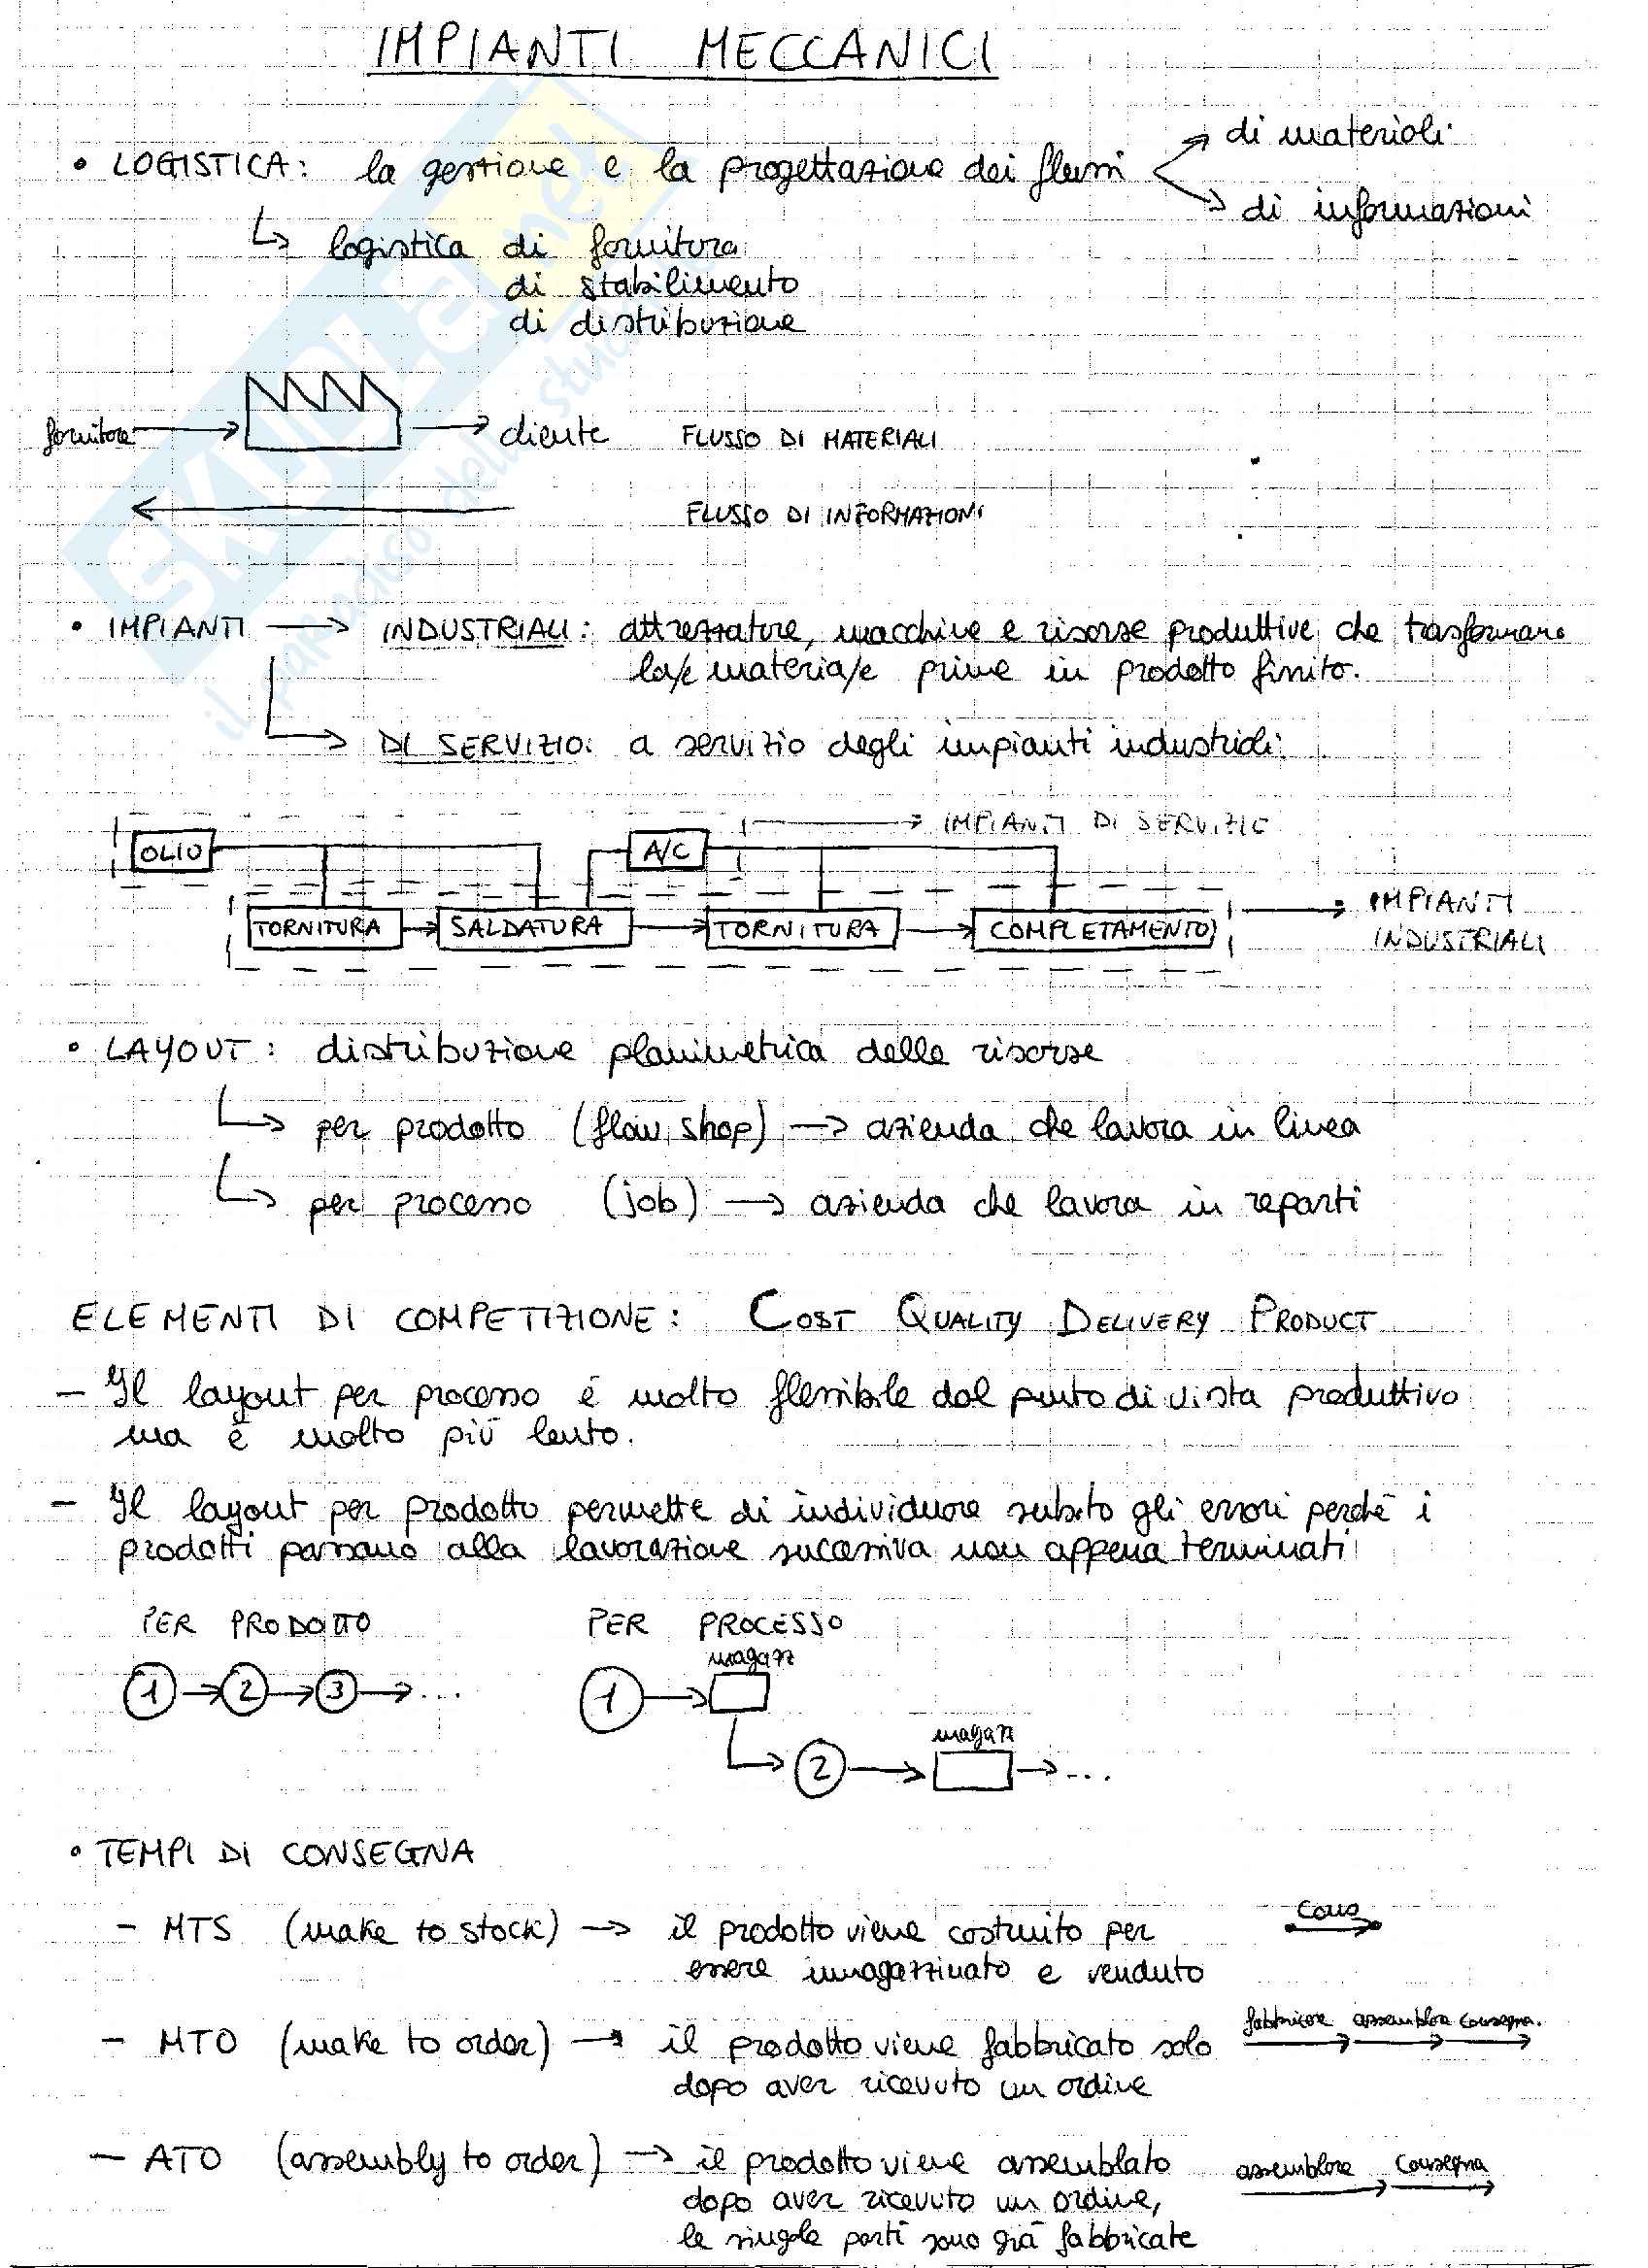 IMPIANTI MECCANICI
• LOGISTICA: la gestione e la progettazione dei flussi
di materiali
di informazioni
logistica di fornitura
di stabilimento
di distribuzione
fornitore cliente FLUSSO DI MATERIALI
FLUSSO DI INFORMAZIONI
• IMPIANTI INDUSTRIALI: attrezzature, macchine e risorse produttive che trasformano
la/e materia/e prime in prodotto finito.
DI SERVIZIO: a servizio degli impianti industriali
IMPIANTI DI SERVIZIO
OLIO A/C
TORNITURA SALDATURA TORNITURA COMPLETAMENTO
IMPIANTI
INDUSTRIALI
• LAYOUT: distribuzione planimetrica delle risorse
per prodotto (flow shop) → azienda che lavora in linea
per processo (job) → azienda che lavora in reparti
ELEMENTI DI COMPETIZIONE: COST QUALITY DELIVERY PRODUCT
- Il layout per processo è molto flessibile dal punto di vista produttivo
ma è molto più lento.
- Il layout per prodotto permette di individuare subito gli errori perché i
prodotti passano alla lavorazione successiva non appena terminati
PER PRODOTTO PER PROCESSO
magazz
1 → 2 → 3 → ... 1
magazz
2 → ...
• TEMPI DI CONSEGNA
- MTS (make to stock) → il prodotto viene costruito per
essere immagazzinato e venduto
- MTO (make to order) → il prodotto viene fabbricato solo
dopo aver ricevuto un ordine
fabbricare assemblare consegna.
- ATO (assembly to order) → il prodotto viene assemblato
dopo aver ricevuto un ordine,
le singole parti sono già fabbricate
assemblare consegna
SKUOLA.net